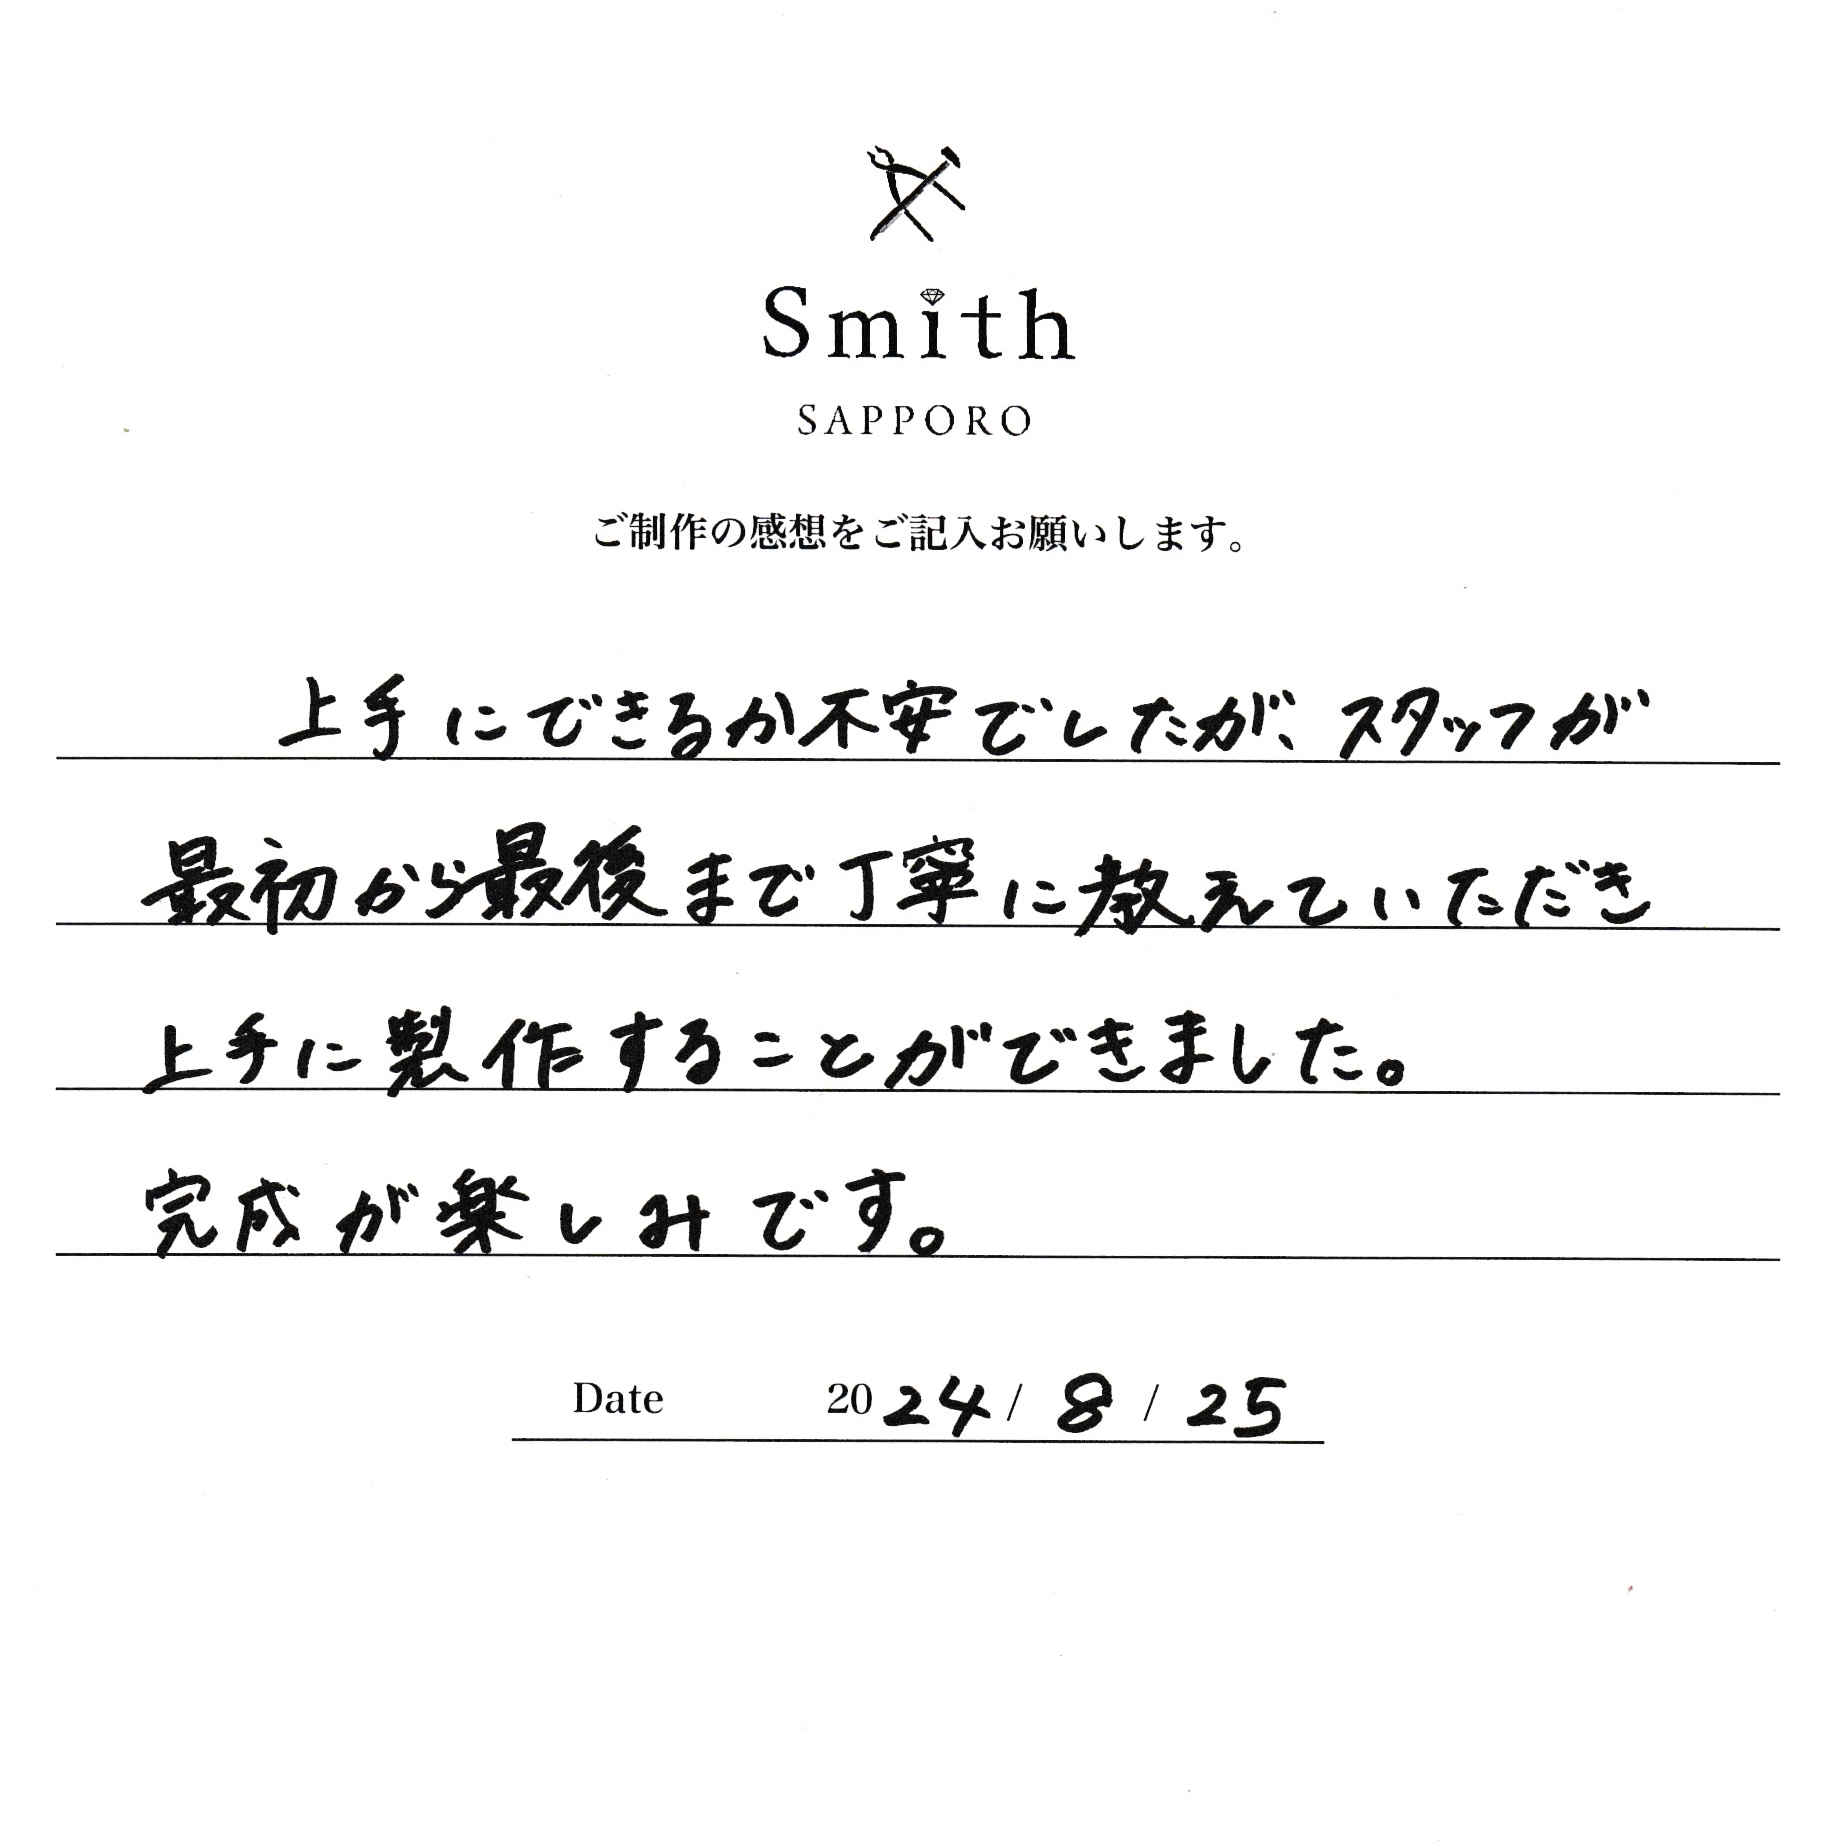 Smith
SAPPORO
ご制作の感想をご記入お願いします。
上手にできるか不安でしたが、スタッフが
最初から最後まで丁寧に教えていただき
上手に製作することができました。
完成が楽しみです。
Date 2024/8/25